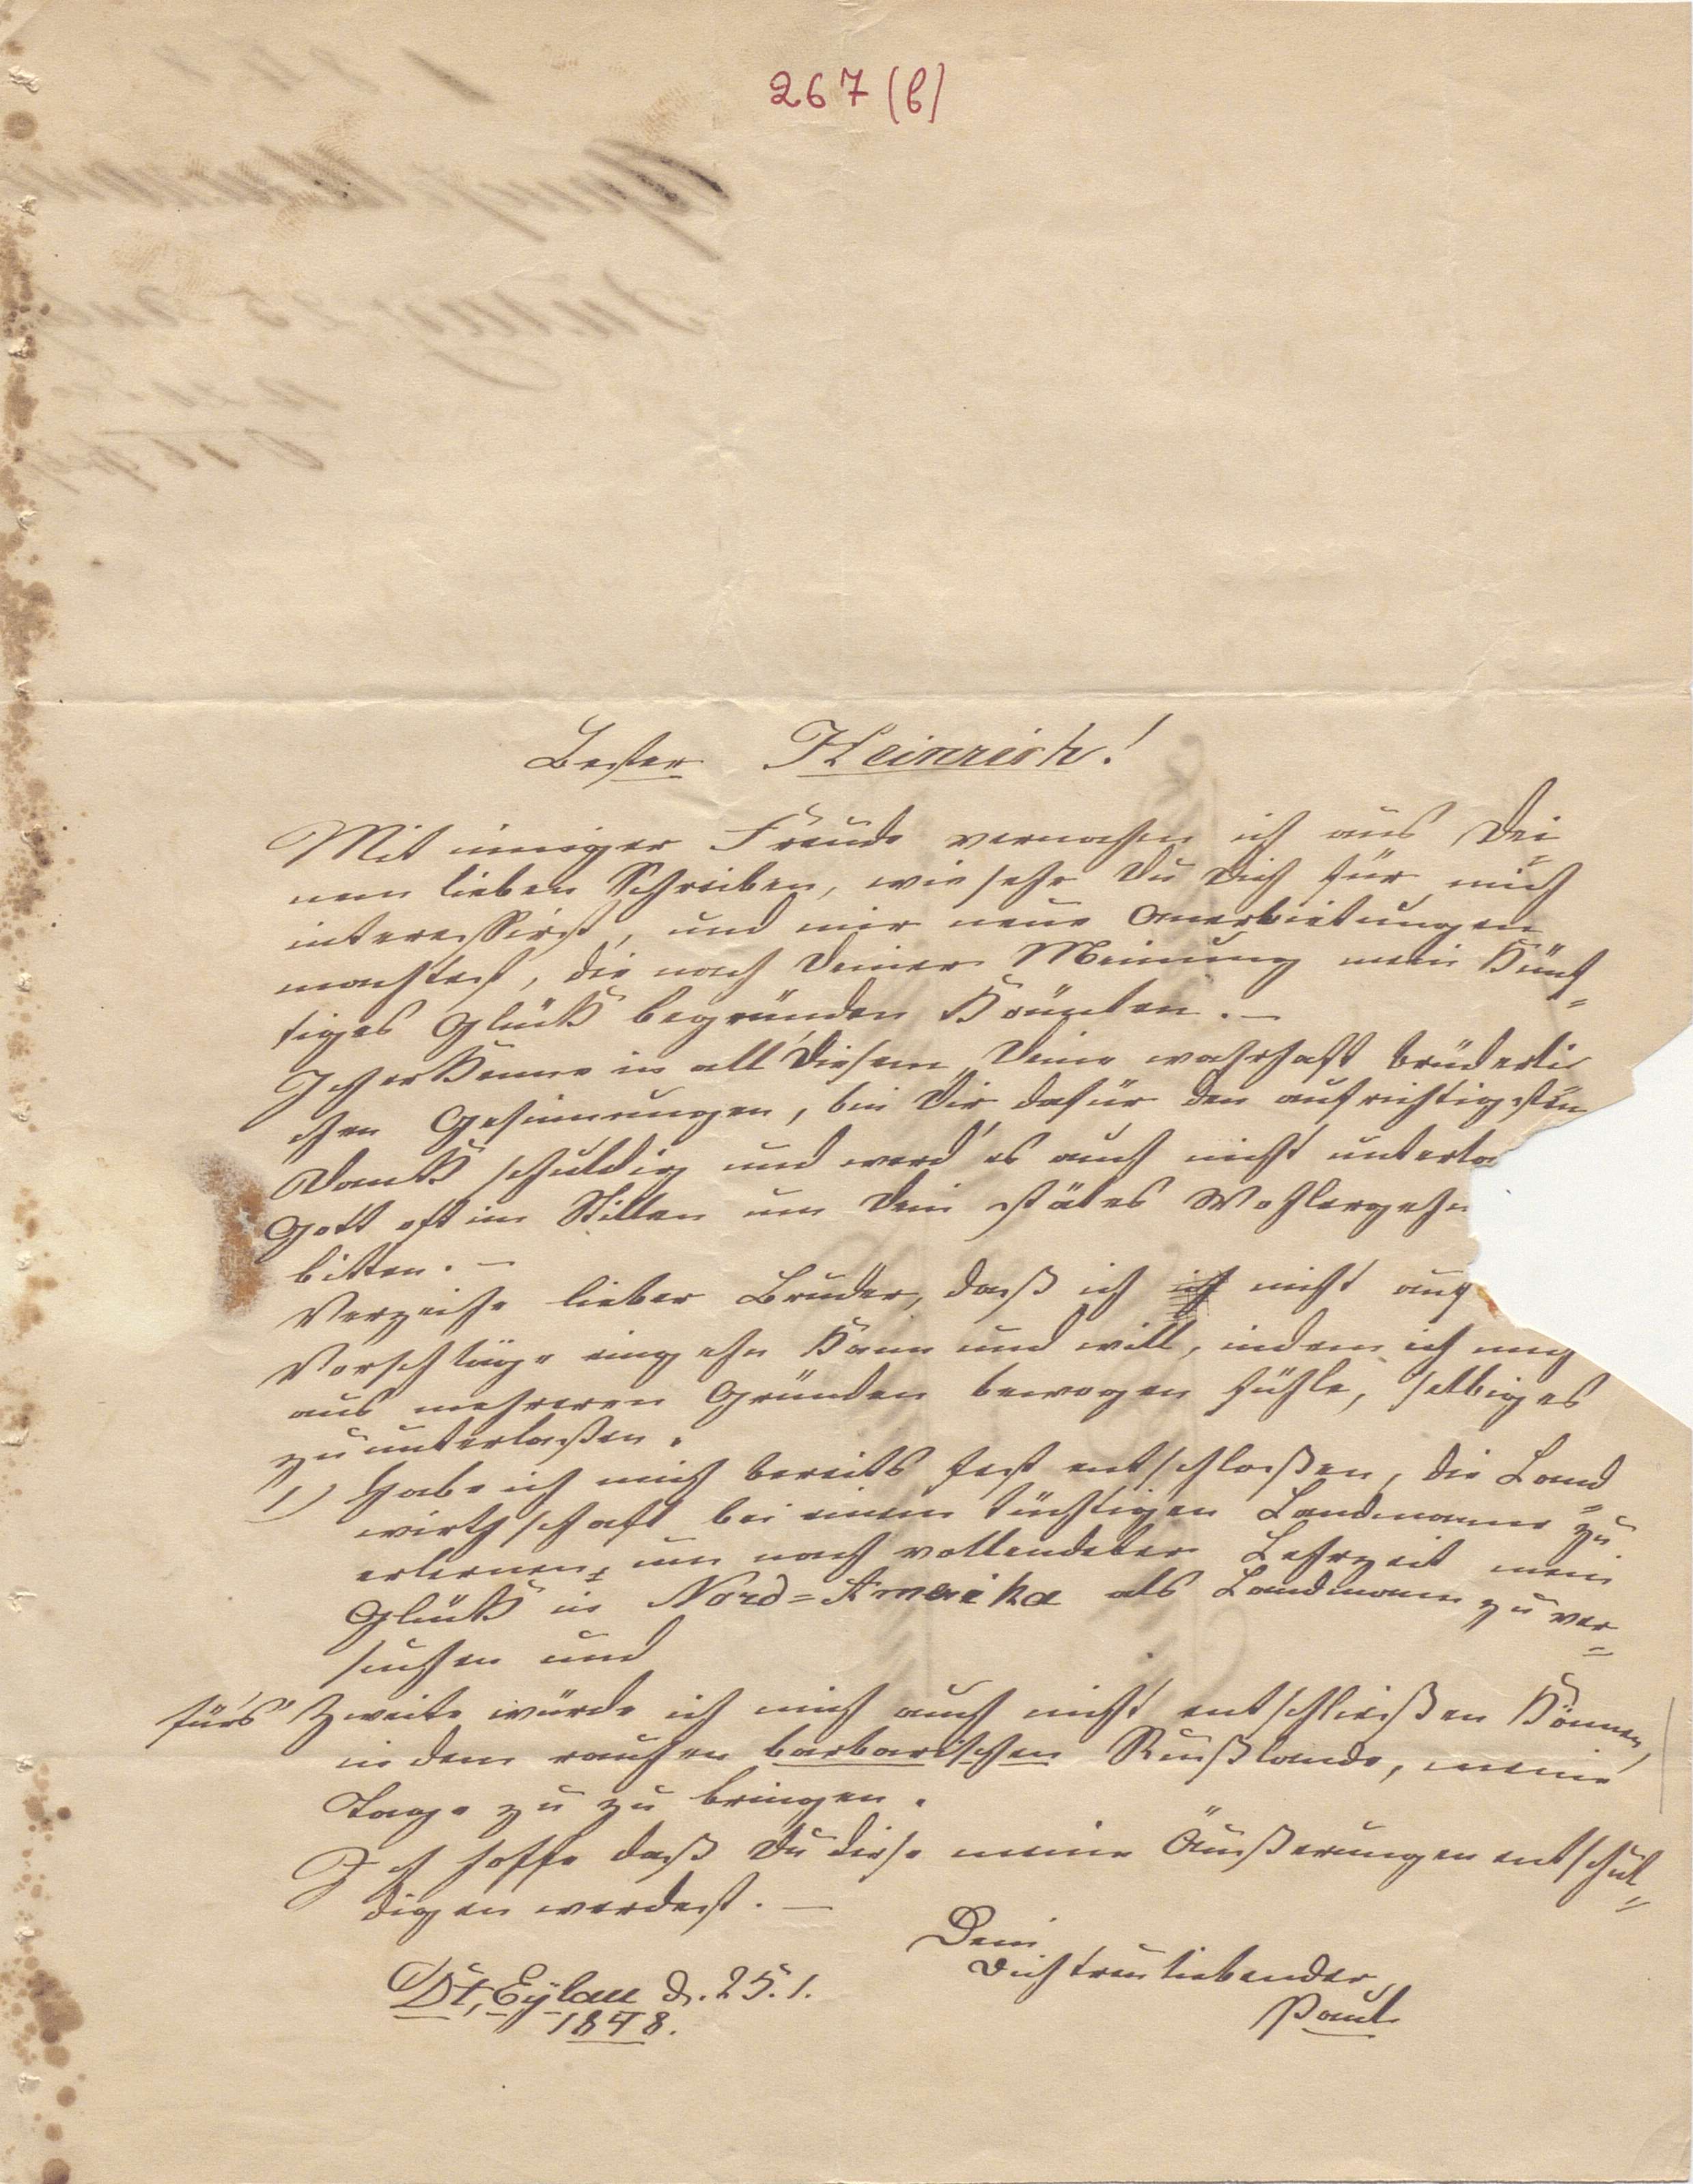 267 (b)
Bester Heinrich!
Mit inniger Freude vernahm ich aus Dei
nem lieben Schreiben, wie sehr Du Dich für mich
interessirst, und mir neue Anerbietungen
machtest, die nach Deiner Meinung mein künf=
tiges Glück begründen könnten. —
Ich erkenne in all' Diesem Deine wahrhaft brüderli
chen Gesinnungen, bin Dir dafür den aufrichtigsten
Dank schuldig und werd' es auch nicht unterla
Gott oft im Stillen um Dein stätes Wohlergehn
bitten. —
Verzeihe lieber Bruder, daß ich nicht auf
Vorschläge eingehn kann und will, indem ich mich
aus mehreren Gründen bewogen fühle, selbiges
zu unterlaßen.
1) Habe ich mich bereits fest entschloßen, die Land=
wirthschaft bei einem tüchtigen Landmanne zu
erlernen, um nach vollendeter Lehrzeit mein
Glück in Nord=Amerika als Landmann zu ver=
suchen und
fürs Zweite würde ich mich auch nicht entschließen können,
in dem rauhen barbarischen Rußlande, meine
Tage zu zu bringen.
Ich hoffe daß Du diese meine Äußerungen entschul=
digen werdest. —
Dein
Dich treu liebender
Paul
Dt, Eylau d. 25. 1.
1848.